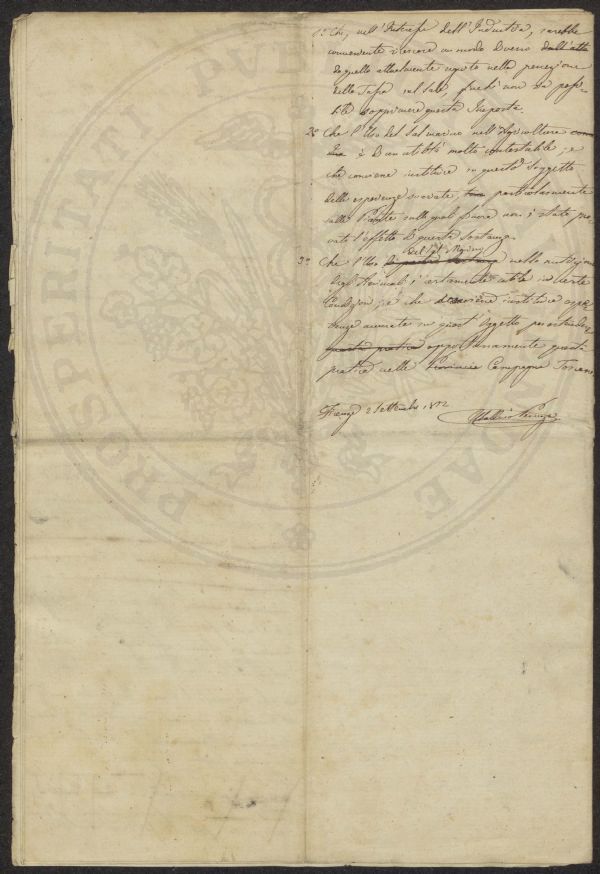 1.° Che, nell'Interesse dell'Industria, sarebbe
conveniente riescere in modo diverso dall'atto
da quello attualmente seguito nella percezione
della Tassa sul Sale, quando non sia possi-
bile sopprimere questa Imposta.
2.° Che l'Uso del Sal marino nell'Agricoltura
è d'una utilità molto contestabile; e
che conviene instituire in questo Soggetto
delle esperienze accurate, particolarmente
sulle Piante sulle quali finora non è stato pro-
vato l'effetto di questa Sostanza.
3.° Che l'Uso di questa Sostanza del Sal Marino nella nutrizione
degli Animali è certamente utile in certe
Condizioni; e che conviene instituire espe-
rienze accurate su quest'oggetto
questa pratica opportunamente questa
pratica nelle Provincie Campagne Toscane
Firenze 2 Settembre
PROSPERITATI PUBLICAE